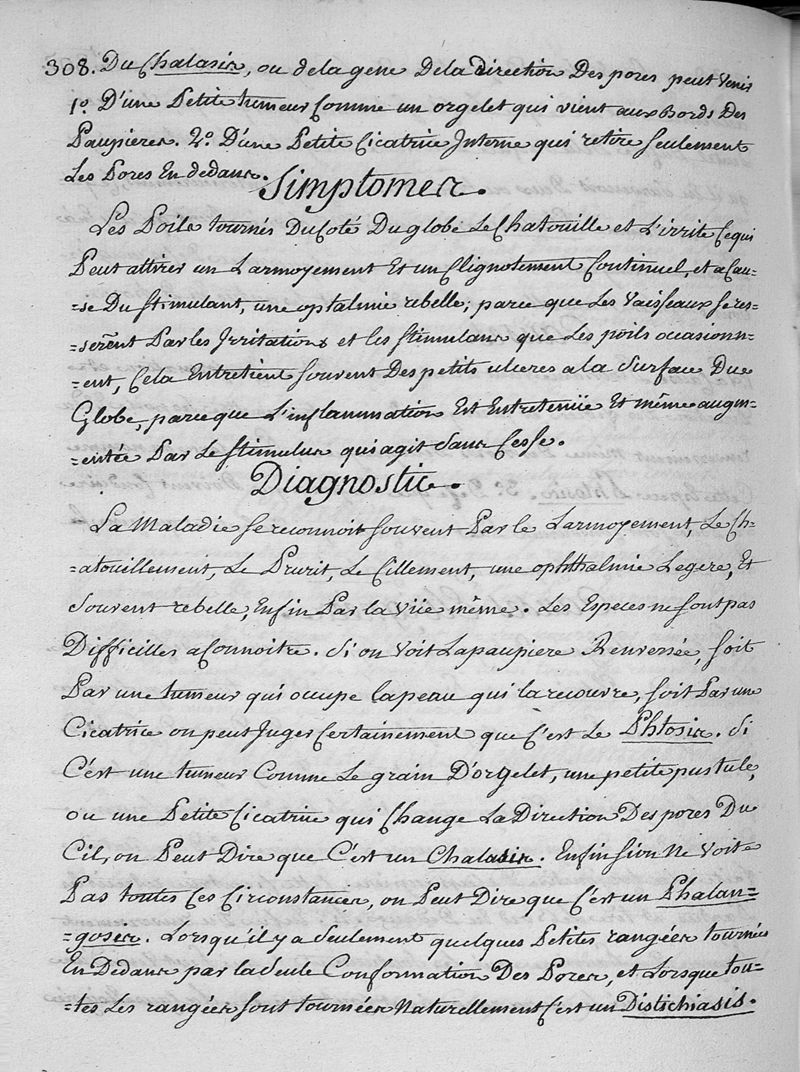 308. Du Chalasis, ou de la gene De la Direction Des pores peut Venir
1.o D'une Petite tumeur Comme un orgelet qui vient aux Bords Des
Paupieres. 2.o D'une Petite Cicatrice Interne qui retire seulement
Les Pores En dedans.
Simptomes.
Les Poils tournés Du Coté Du globe Le Chatouille et L'irrite Ce qui
Peut attirer un Larmoyement Et un Clignotement Continuel, et a Cau-
-se Du stimulant, une optalmie rebelle; parce que Les Vaisseaux se res-
-serrent Par les Irritations et les stimulans que Les poils occasionn-
-ent, Cela Entretient souvent Des petits ulceres a la surface Du
Globe, parceque L'inflammation Est Entretenüe Et même augm-
-entée Par Le stimulus qui agit sans Cesse.
Diagnostic.
La Maladie se reconnoit souvent Par le Larmoyement, Le Ch-
-atouillement, Le Prurit, Le Cillement, une ophthalmie Legere, Et
souvent rebelle, Enfin Par la Vüe même. Les Especes ne sont pas
Difficilles a Connoitre. Si on Voit La paupiere Renversée, soit
Par une tumeur qui occupe la peau qui la recouvre, soit Par une
Cicatrice on peut Juger Certainement que C'est Le Phtosis. Si
C'est une tumeur Comme Le grain D'orgelet, une petite pustule,
ou une Petite Cicatrice qui Change La Direction Des pores Du
Cil, on Peut Dire que C'est un Chalasis. Enfin si on Ne Voit
Pas toutes Ces Circonstances, on Peut Dire que C'est un Phalan-
-gosis. Lorsqu'il y a seulement quelques Petites rangées tournées
En Dedans par la seule Conformation Des Pores, et Lorsque tou-
-tes Les rangées sont tournées Naturellement C'est un Distichiasis.